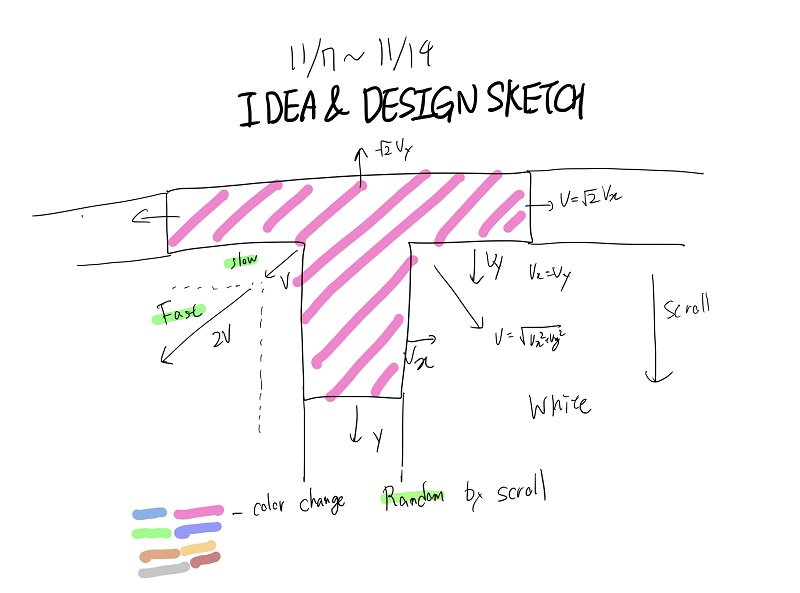 11/7 ~ 11/14
IDEA & DESIGN SKETCH
-√2 Vy
V = √2 Vx
slow
V
Vy
Vx = Vy
Fast
2V
V = √Vx²+Vy²
Scroll
Vx
White
Y
- color change Random by scroll